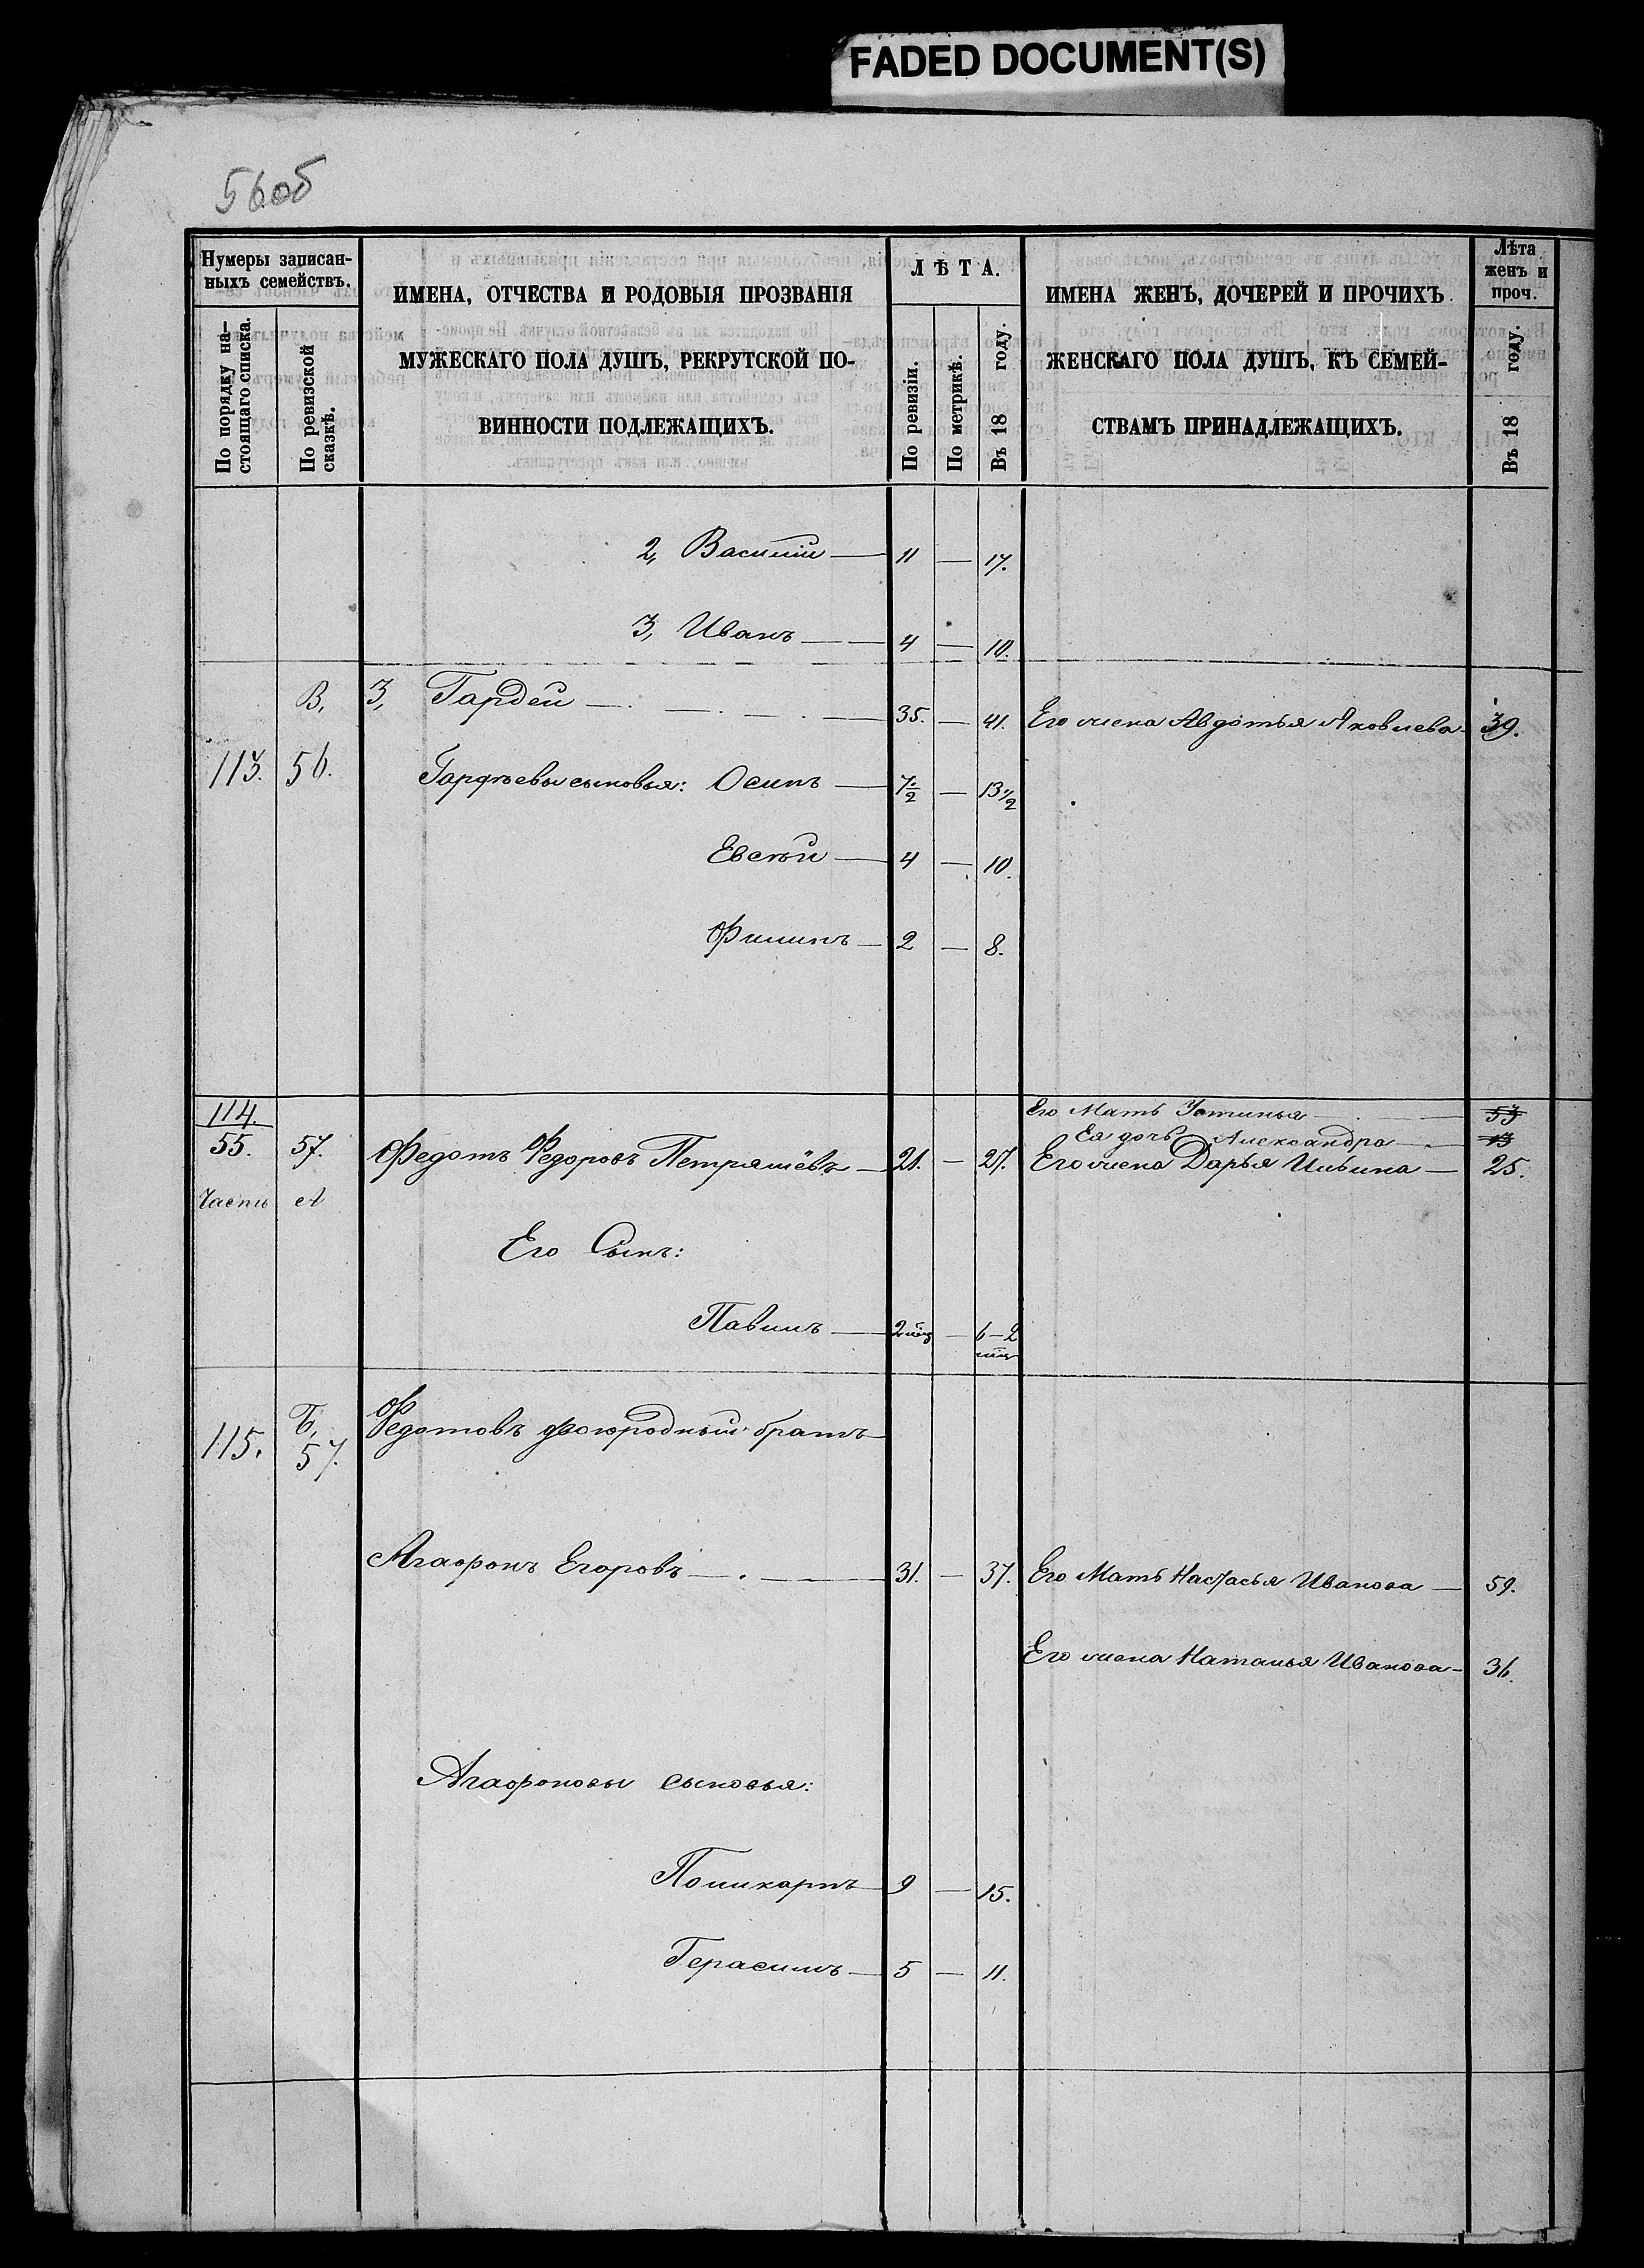 FADED DOCUMENT(S)
56об
Нумеры записан-
ныхъ семействъ.
По порядку на-
стоящаго списка.
По ревизской
сказкѣ.
ИМЕНА, ОТЧЕСТВА И РОДОВЫЯ ПРОЗВАНІЯ
МУЖЕСКАГО ПОЛА ДУШЪ, РЕКРУТСКОЙ ПО-
ВИННОСТИ ПОДЛЕЖАЩИХЪ.
ЛѢТА.
По ревизіи.
По метрикѣ.
Въ 18 году.
ИМЕНА ЖЕНЪ, ДОЧЕРЕЙ И ПРОЧИХЪ
ЖЕНСКАГО ПОЛА ДУШЪ, КЪ СЕМЕЙ-
СТВАМЪ ПРИНАДЛЕЖАЩИХЪ.
Лѣта
женъ и
проч.
Въ 18 году.
2, Василій — 11 — 17.
3, Иванъ — 4 — 10.
В, 3, Гардей — 35. — 41. Его жена Авдотья Яковлева 39.
113. 56. Гардѣевы сыновья: Осипъ — 7½ — 13½
Евсѣй — 4 — 10.
Филипъ — 2 — 8.
114. Его Мать Устинья — 53
Ея дочь Александра — 13
55. 57. Федотъ Федоровъ Петряшёвъ — 21. — 27. Его жена Дарья Ильина — 25.
Часть А
Его Сынъ:
Павилъ — 2 мѣц — 6-2
мѣц
115. Б, Федотовъ двоюродный братъ
57.
Агафонъ Егоровъ — 31. — 37. Его Мать Настасья Иванова — 59.
Его жена Наталья Иванова — 36.
Агафоновы сыновья:
Поликарпъ 9 — 15.
Герасимъ — 5 — 11.